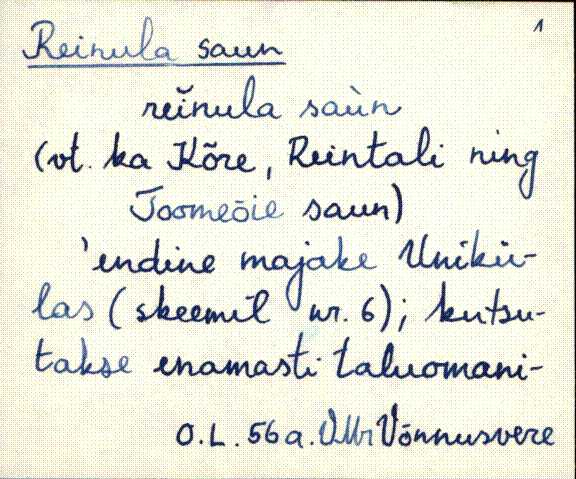 1
Reinula saun
reĭnula saùn
(vt. ka Kõre, Reintali ning
Toomeõie saun)
'endine majake Unikü-
las (skeemil nr. 6); kutsu-
takse enamasti taluomani-
O.L. 56a. Võnnusvere